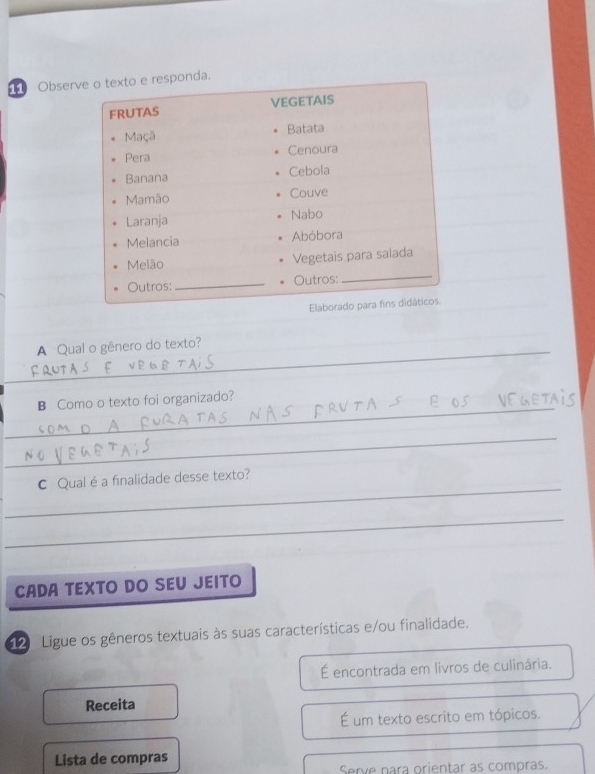 11 Observe o texto e responda.
FRUTAS
• Maçã
• Pera
• Banana
• Mamão
• Laranja
• Melancia
• Melão
• Outros:
VEGETAIS
• Batata
• Cenoura
• Cebola
• Couve
• Nabo
• Abóbora
• Vegetais para salada
• Outros:
Elaborado para fins didáticos.
A Qual o gênero do texto?
FRUTAS E VEGETAiS
B Como o texto foi organizado?
COM O A FURATAS NAS FRUTAS E OS VEGETAiS
NO VEGETAiS
C Qual é a finalidade desse texto?
CADA TEXTO DO SEU JEITO
12 Ligue os gêneros textuais às suas características e/ou finalidade.
É encontrada em livros de culinária.
Receita
É um texto escrito em tópicos.
Lista de compras
Serve para orientar as compras.